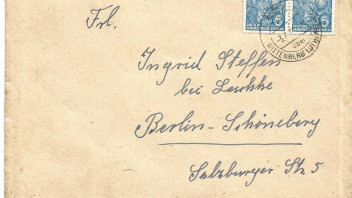 Frl.
Ingrid Steffen
bei Leschke
Berlin-Schöneberg
Salzburger Str 5
6 6
WITTENBERG LUTHERST